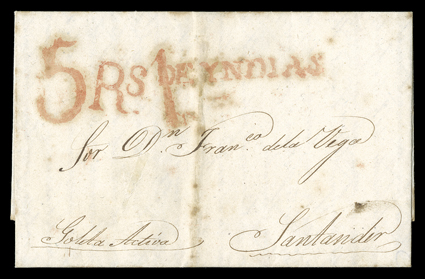 5 Rs 1 DE YNDIAS
Sor. Dn. Franco. dela Vega
Goleta Activa
Santander